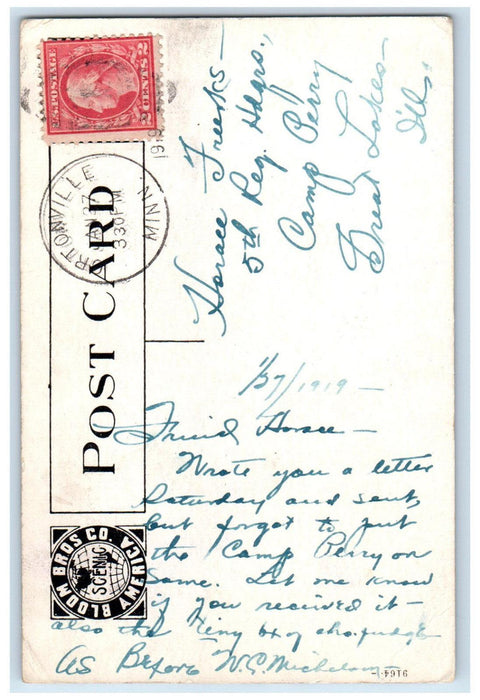 U.S. POSTAGE
2 CENTS 2
1919
ORTONVILLE
JAN 27
330PM
MINN
POST CARD
BLOOM BROS CO.
SCENIC
AMERICA
Horace Freeks—
5th Reg. Hdqrs.,
Camp Perry
Great Lakes—
Ills.
1/27/1919—
Friend Horace—
Wrote you a letter
Saturday and sent,
but forgot to put
the Camp Perry on
same. Let me know
if you received it—
also the tiny bx of cho. fudge
As Before W.C.
9164